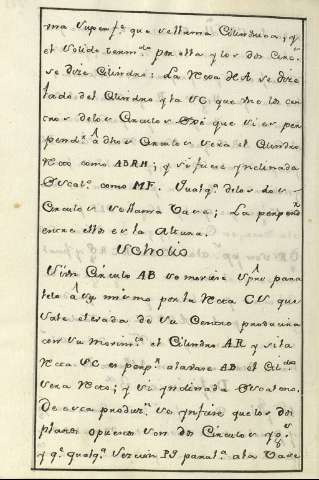 ma superf.e que se llama Cilindrica; y
el solido term.do por esta y los dos Circ.s
se dize Cilindro: La Recta HA se dize
lado del Cilindro y la SC que une los cen
tros de los Circulos Exe que si es per
pend.r â dhos Circulos sera el Cilindro
Recto como ABRH; y si fuere ynclinada
como MF. Qualq.a de los dos
Circulos se llama Vase; La perpend.r
entre ellos es la Altura.
Scholio
Si un Circulo AB se moviere spre para
lelo â sy mismo por la Recta CS que
sale elevada de su Centro producira
con su movim.to el Cilindro AR y si la
Recta SC es perp.r a la vase AB el Cil.dro
sera Recto; y si ynclinada Escaleno.
De esta produz.n se ynfiere que los dos
planos opuestos son dos Circulos yg.s
y q.e qualq.a seccion PI paral.a a la Vase